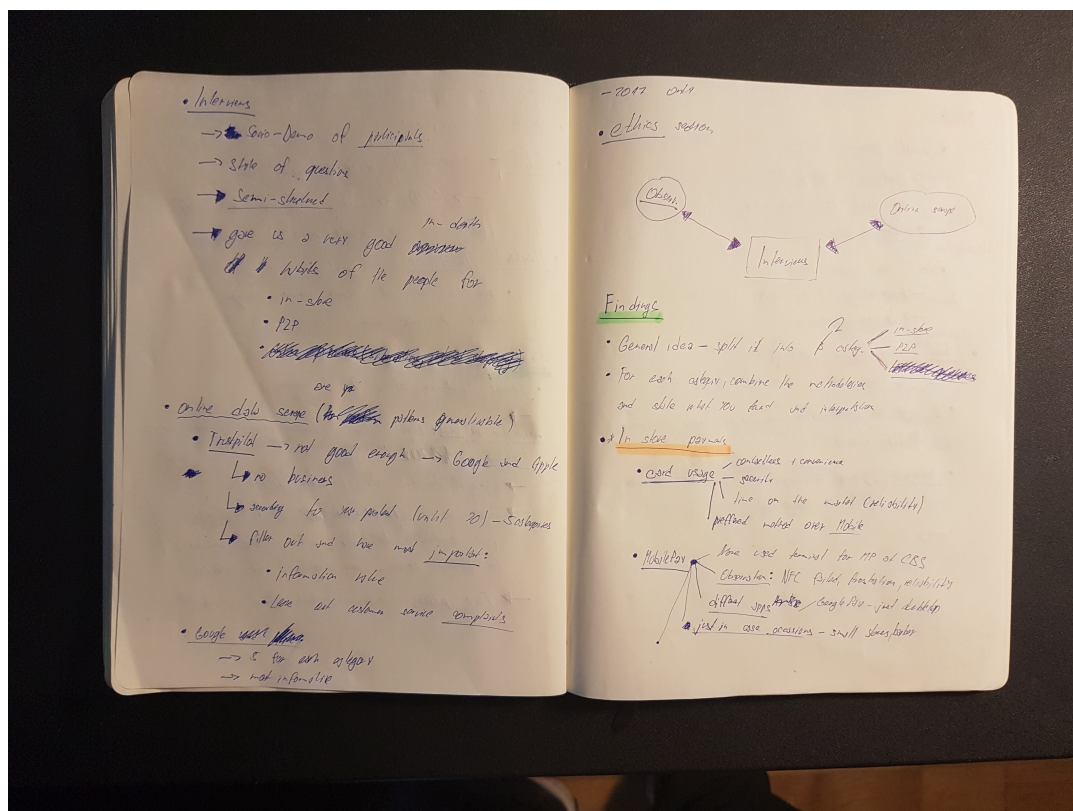 • Interviews
→ Socio-Demo of participants
→ style of question
→ Semi-structured
in-depth
→ gave us a very good
habits of the people for
• in-store
• P2P
are
• online data scrape ( patterns generalisable)
• Trustpilot → not good enough → Google and Apple
↳ no business
↳ searching for key period (until 20) – 5 categories
↳ filter out and use most important:
• information value
• Leave out customer service complaints
• Google
→ 5 for each category
→ most informative
– 2017 only
• ethics section
Observ.
Online scrape
Interviews
Findings
• General idea – split it into 2 categ.
in-store
P2P
• For each category, combine the methodologies
and state what you found and interpretation
• In store payments
• card usage
contactless + convenience
security
time on the market (reliability)
preffered method over Mobile
• MobilePay
None used terminal for MP at CBS
Observation: NFC failed, frustration, reliability
different apps / GooglePay – just
just in case occassions – small stores,